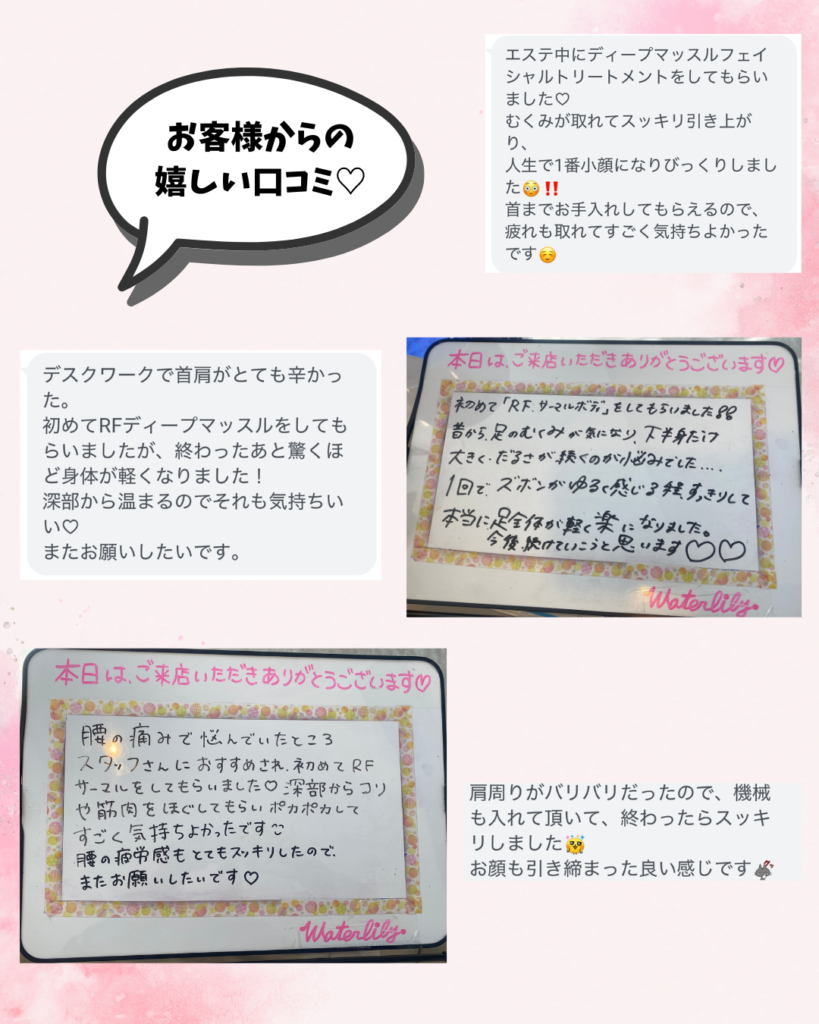 お客様からの
嬉しい口コミ♡
エステ中にディープマッスルフェイ
シャルトリートメントをしてもらい
ました♡
むくみが取れてスッキリ引き上が
り、
人生で1番小顔になりびっくりしまし
た😳‼️
首までお手入れしてもらえるので、
疲れも取れてすごく気持ちよかった
です☺️
デスクワークで首肩がとても辛かっ
た。
初めてRFディープマッスルをしても
らいましたが、終わったあと驚くほ
ど身体が軽くなりました！
深部から温まるのでそれも気持ちい
い♡
またお願いしたいです。
本日は、ご来店いただきありがとうございます♡
初めて「RFサーマルボディ」をしてもらいました
昔から、足のむくみが気になり、下半身だけ
大きく・だるさが続くのが悩みでした....
1回で、ズボンがゆるく感じる程、すっきりして
本当に足全体が軽く楽になりました。
今後、続けていこうと思います♡♡
Waterlily
本日は、ご来店いただきありがとうございます♡
腰の痛みで悩んでいたところ
スタッフさんにおすすめされ、初めてRF
サーマルをしてもらいました♡深部からコリ
や筋肉をほぐしてもらいポカポカして
すごく気持ちよかったです
腰の疲労感もとてもスッキリしたので、
またお願いしたいです♡
Waterlily
肩周りがバリバリだったので、機械
も入れて頂いて、終わったらスッキ
リしました
お顔も引き締まった良い感じです